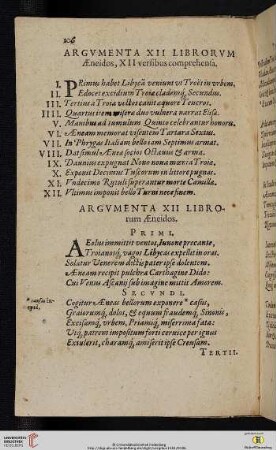 ARGVMENTA XII LIBRORVM
Æneidos, XII versibus comprehensa.
I. PRimus habet Libycā veniant vt Troës in vrbem.
II. Edocet excidium Troiæ clademq́, Secundus.
III. Tertius à Troia vectos canit æquore Teucros.
IIII. Quartus item miseræ duo vulnera narrat Elisæ.
V. Manibus ad tumulum Quinto celebrantur honores.
VI. Æneam memorat visentem Tartara Sextus.
VII. In Phrygas Italiam bello iam Septimus armat.
VIII. Dat simul Æneæ socios Octauus & arma.
IX. Daunius expugnat Nono noua mœnia Troiæ.
X. Exponit Decimus Tuscorum in littore pugnas.
XI. Vndecimo Rutuli superantur morte Camillæ.
XII. Vltimus imponit bello Turni nece finem.
ARGVMENTA XII LIBRO-
rum Æneidos.
PRIMI.
AEolus immittit ventos, Iunone precante,
Troianosq́, vagos Libycas expellit in oras.
Solatur Venerem dictis pater ipse dolentem.
Æneam recipit pulchra Carthagine Dido:
Cui Venus Ascanij sub imagine mittit Amorem.
SECVNDI.
Cogitur Æneas bellorum exponere * casus,
Graiorumq́, dolos, & equum fraudemq́, Sinonis,
Excisamq́, vrbem, Priamiq́, miserrima fata:
Vtq́, patrem impositum forti ceruice per ignes
Extulerit, charamq́, amiserit ipse Creusam.
TERTII.